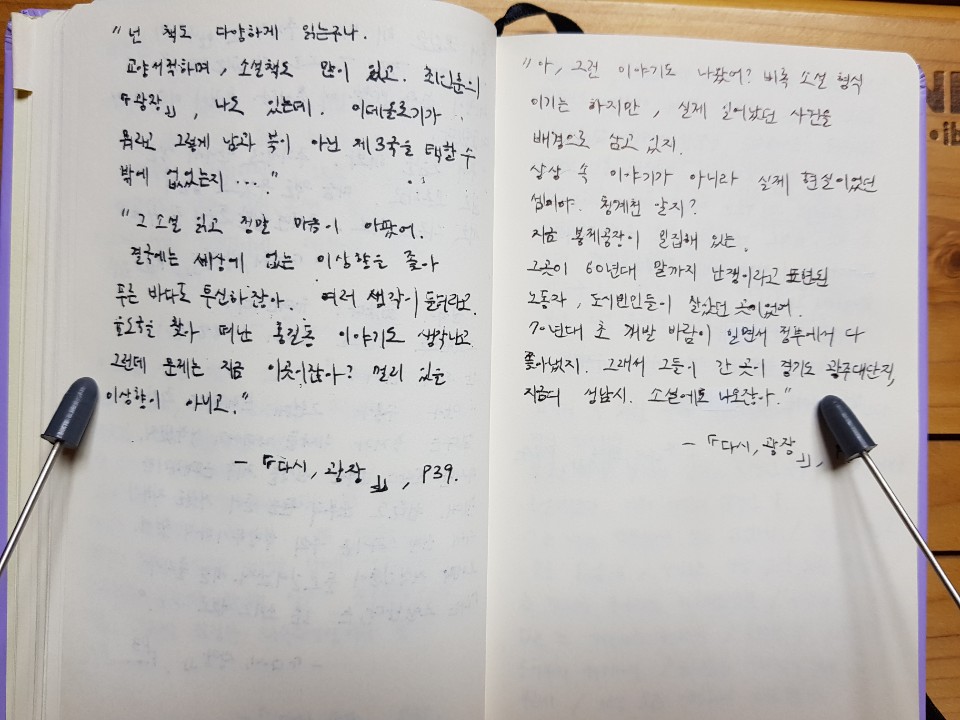 "넌 책도 다양하게 읽는구나.
교양서적하며, 소설책도 많이 있고. 최인훈의
『광장』, 나도 있는데. 이데올로기가
뭐라고 그렇게 남과 북이 아닌 제3국을 택할 수
밖에 없었는지..."
"그 소설 읽고 정말 마음이 아팠어.
결국에는 세상에 없는 이상향을 쫓아
푸른 바다로 투신하잖아. 여러 생각이 들더라고.
율도국을 찾아 떠난 홍길동 이야기도 생각나고
그런데 문제는 지금 이곳이잖아? 멀리 있는
이상향이 아니고."
- 『다시, 광장』, P39.
"아, 그런 이야기도 나왔어? 비록 소설 형식
이기는 하지만, 실제 일어났던 사건을
배경으로 삼고 있지.
상상 속 이야기가 아니라 실제 현실이었던
셈이야. 청계천 알지?
지금 봉제공장이 밀집해 있는.
그곳이 60년대 말까지 난쟁이라고 표현된
노동자, 도시빈민들이 살았던 곳이었어.
70년대 초 개발 바람이 일면서 정부에서 다
쫓아냈지. 그래서 그들이 간 곳이 경기도 광주대단지,
지금의 성남시. 소설에도 나오잖아."
- 『다시, 광장』,